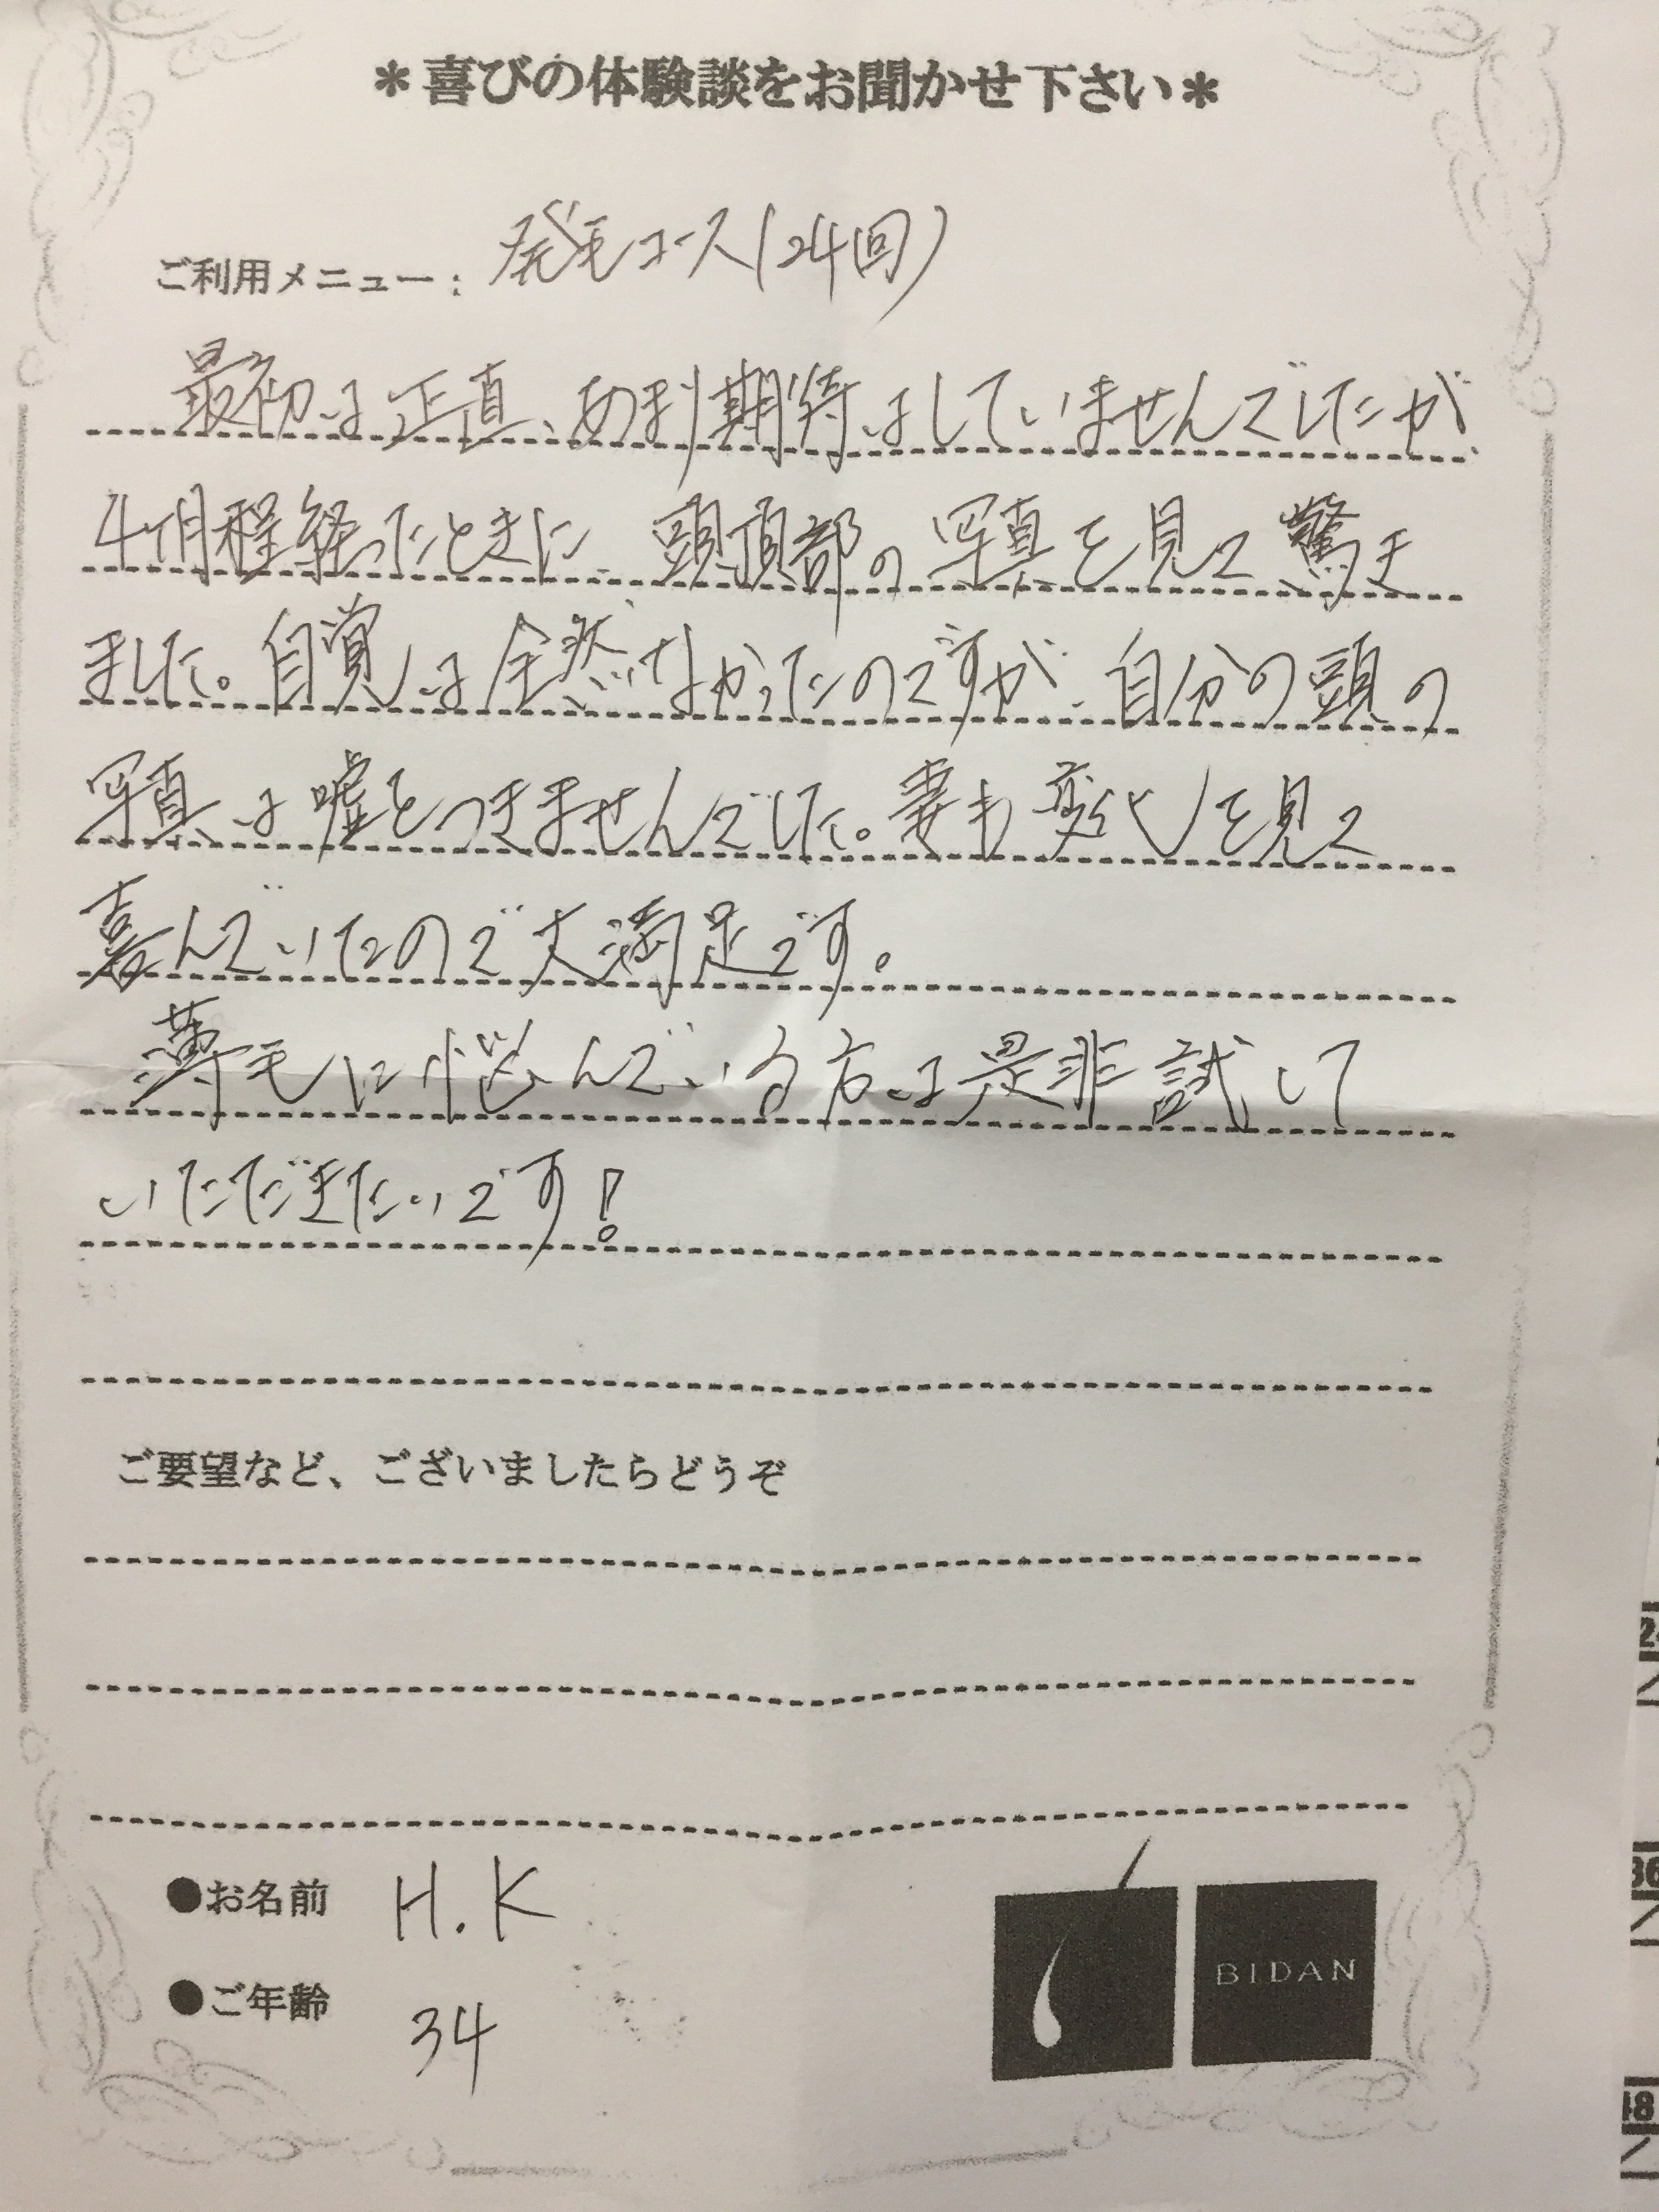 ＊喜びの体験談をお聞かせ下さい＊
ご利用メニュー： 発毛コース(24回)
最初は正直、あまり期待はしていませんでしたが、
4ヶ月程経ったときに、頭頂部の写真を見て驚き
ました。自覚は全然なかったのですが、自分の頭の
写真は嘘をつきませんでした。妻も変化を見て
喜んでいたので大満足です。
薄毛に悩んでいる方は是非試して
いただきたいです！
ご要望など、ございましたらどうぞ
●お名前 H.K
●ご年齢 34
BIDAN